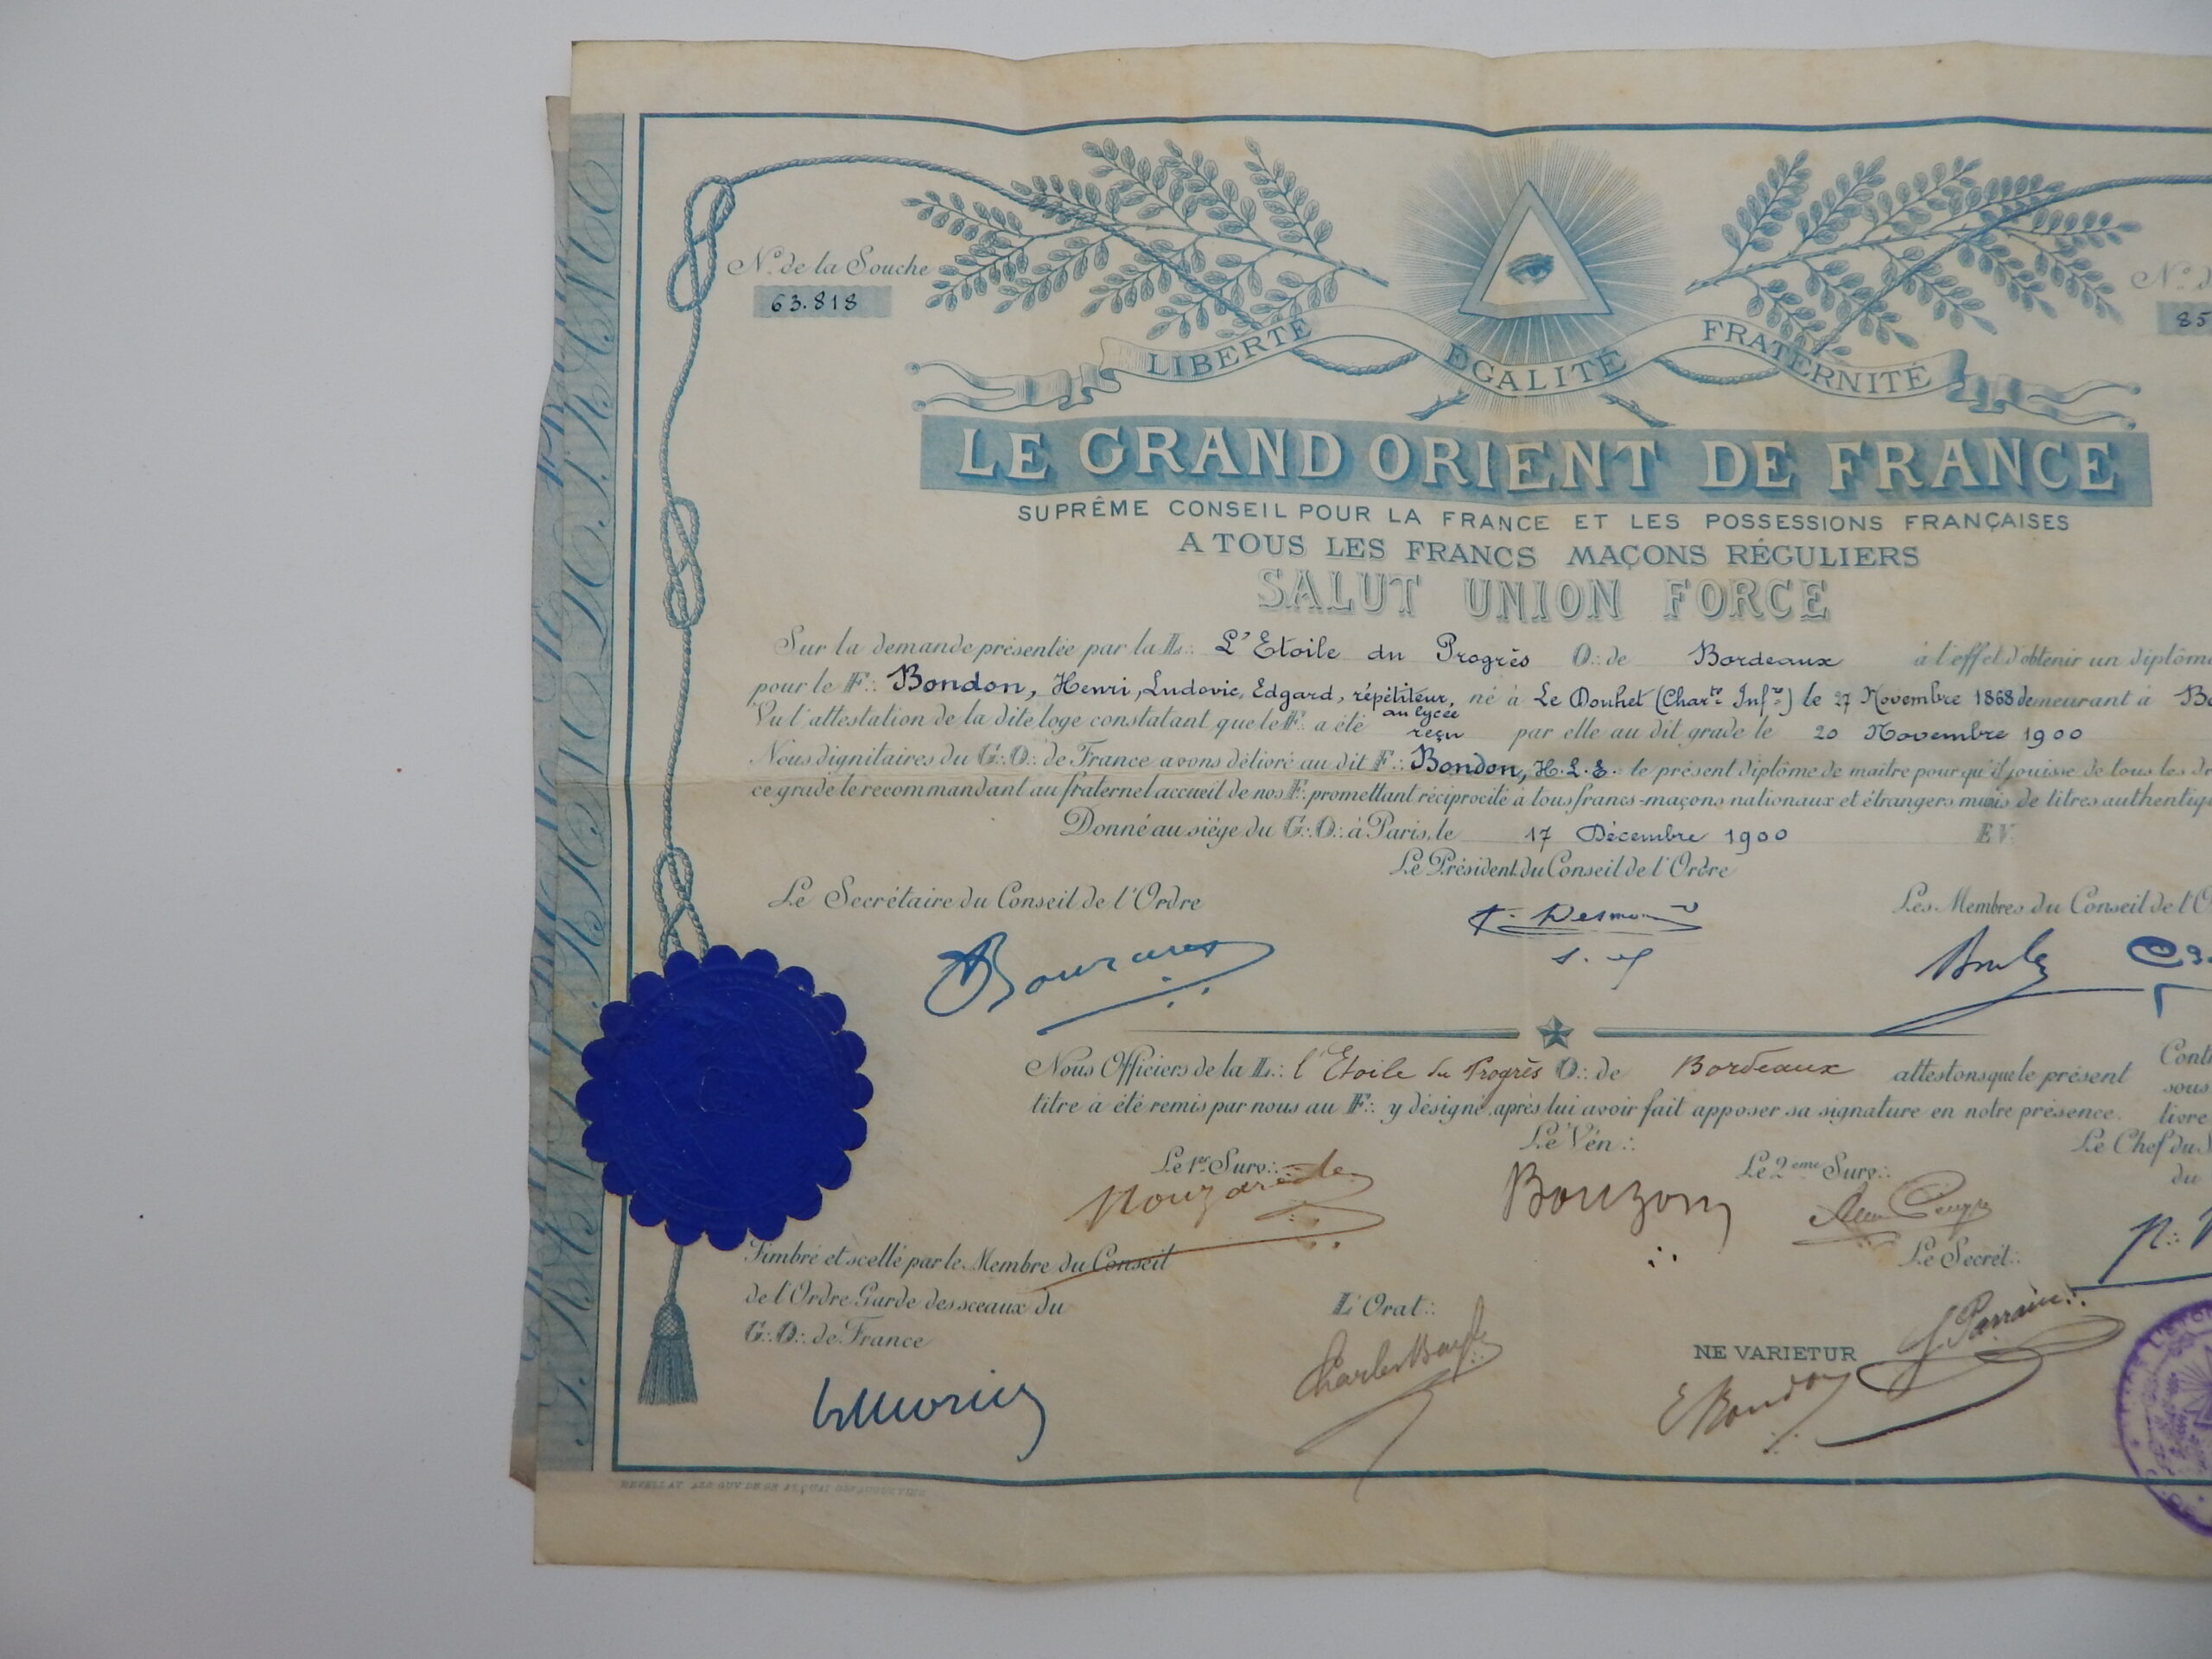 N.º de la Souche
63.818
N.º d
85
LIBERTÉ ÉGALITÉ FRATERNITÉ
LE GRAND ORIENT DE FRANCE
SUPRÊME CONSEIL POUR LA FRANCE ET LES POSSESSIONS FRANÇAISES
A TOUS LES FRANCS MAÇONS RÉGULIERS
SALUT UNION FORCE
Sur la demande présentée par la L∴ L'Etoile du Progrès O∴ de Bordeaux à l'effet d'obtenir un diplôme
pour le F∴ Bondon, Henri, Ludovic, Edgard, répétiteur, né à Le Douhet (Charte Infre) le 27 Novembre 1868 demeurant à
au lycée
Vu l'attestation de la dite loge constatant que le F∴ a été reçu par elle au dit grade le 20 Novembre 1900
Nous dignitaires du G∴O∴ de France avons délivré au dit F∴ Bondon, H.L.E. le présent diplôme de maitre pour qu'il jouisse de tous les dr
ce grade le recommandant au fraternel accueil de nos F∴ promettant réciprocité à tous francs-maçons nationaux et étrangers munis de titres authentiq
Donné au siége du G∴O∴ à Paris, le 17 Décembre 1900 E V
Le Président du Conseil de l'Ordre
Le Secrétaire du Conseil de l'Ordre
Les Membres du Conseil de l'O
Nous Officiers de la L∴ l'Etoile du Progrès O∴ de Bordeaux attestons que le présent
titre a été remis par nous au F∴ y désigné, après lui avoir fait apposer sa signature en notre présence.
Cont
sous
livre
Le Chef du S
du
Le Vén∴
Le 1er Surv∴
Le 2ème Surv∴
Bouzon
Le Secrét∴
Timbré et scellé par le Membre du Conseil
de l'Ordre Garde des sceaux du
G∴O∴ de France
L'Orat∴
NE VARIETUR
E Bondon